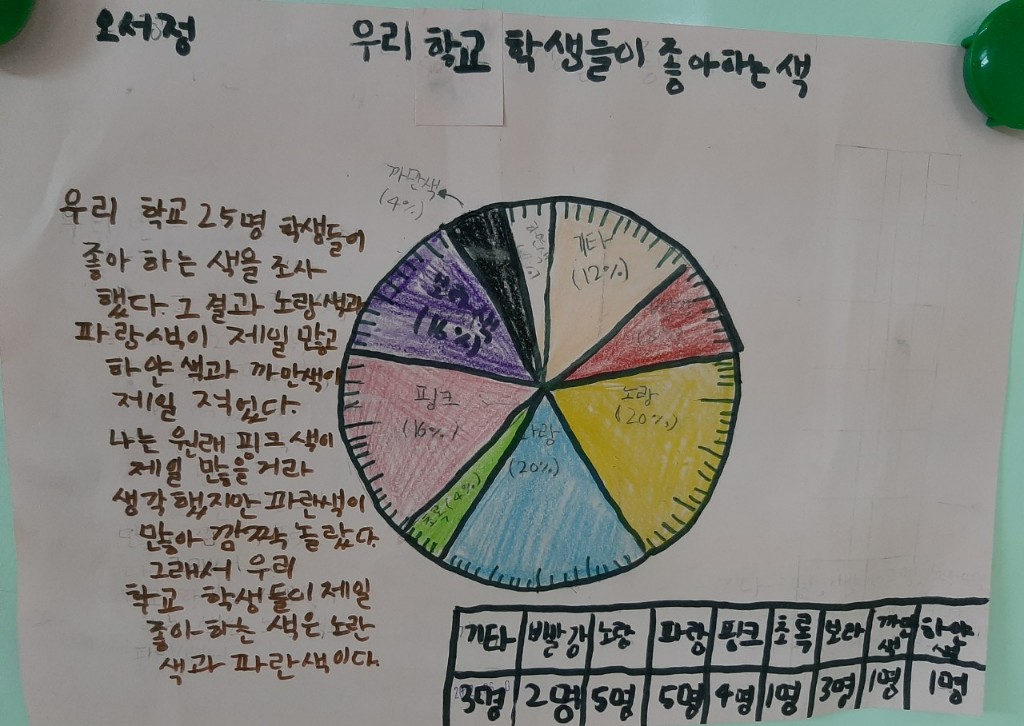 오서정
우리 학교 학생들이 좋아하는 색
우리 학교 25명 학생들이
좋아 하는 색을 조사
했다. 그 결과 노랑색과
파랑색이 제일 많고
하얀색과 까만색이
제일 적었다.
나는 원래 핑크색이
제일 많을거라
생각했지만 파란색이
많아 깜짝 놀랐다.
그래서 우리
학교 학생들이 제일
좋아하는 색은 노란
색과 파란색이다.
까만색
(4%)
기타
(12%)
노랑
(20%)
파랑
(20%)
초록(4%)
핑크
(16%)
보라색
기타 빨강 노랑 파랑 핑크 초록 보라 까만색 하얀색
3명 2명 5명 5명 4명 1명 3명 1명 1명